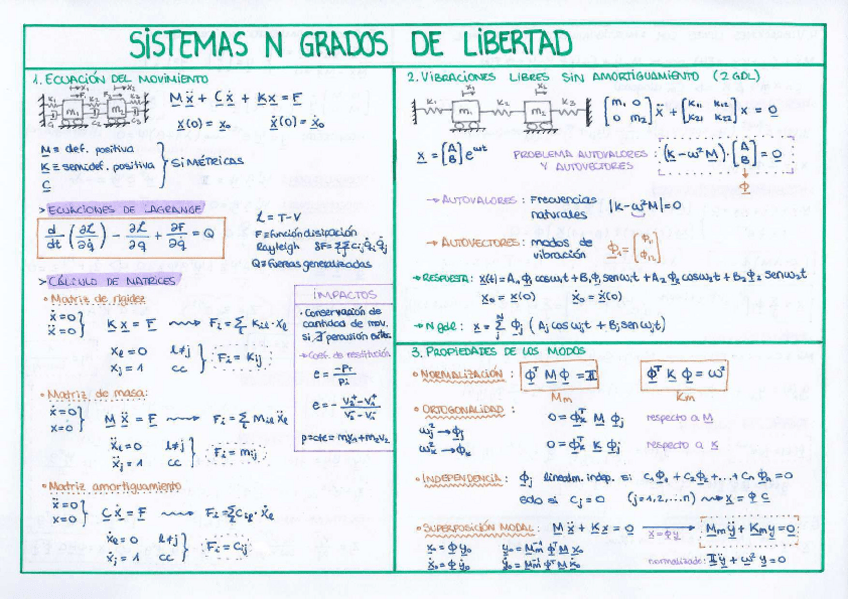 SISTEMAS N GRADOS DE LIBERTAD
1. ECUACIÓN DEL MOVIMIENTO
M ẍ + C ẋ + K x = F
x(0) = x₀ ẋ(0) = ẋ₀
m₁ m₂
M = def. positiva
K = semidef. positiva
C
SIMÉTRICAS
> ECUACIONES DE LAGRANGE
d/dt (∂ℒ/∂q̇) - ∂ℒ/∂q + ∂F/∂q̇ = Q
ℒ = T - V
F = función disipación
Rayleigh
Q = fuerzas generalizadas
> CÁLCULO DE MATRICES
• Matriz de rigidez
ẋ = 0
ẍ = 0
K x = F → Fᵢ = Σ Kᵢₗ · xₗ
xₗ = 0 l ≠ j
xⱼ = 1 cc
Fᵢ = Kᵢⱼ
• Matriz de masa:
ẋ = 0
x = 0
M ẍ = F → Fᵢ = Σ Mᵢₗ ẍₗ
ẍₗ = 0 l ≠ j
ẍⱼ = 1 cc
Fᵢ = mᵢⱼ
• Matriz amortiguamiento
ẍ = 0
x = 0
C ẋ = F → Fᵢ = Σ Cᵢₗ · ẋₗ
ẋₗ = 0 l ≠ j
ẋⱼ = 1 cc
Fᵢ = Cᵢⱼ
IMPACTOS
• Conservación de
cantidad de mov.
si ∄ percusión
→ Coef. de restitución
2. VIBRACIONES LIBRES SIN AMORTIGUAMIENTO (2 GDL)
K₁ m₁ K₂ m₂ K₃
[m₁ 0; 0 m₂] ẍ + [K₁₁ K₁₂; K₂₁ K₂₂] x = 0
PROBLEMA AUTOVALORES
Y AUTOVECTORES
: (K - ω² M) · [A; B] = 0
ϕ
→ AUTOVALORES : Frecuencias
naturales |K - ω² M| = 0
→ AUTOVECTORES : modos de
vibración
→ RESPUESTA: x(t) = A₁ ϕ₁ cos ω₁t + B₁ ϕ₁ sen ω₁t + A₂ ϕ₂ cos ω₂t + B₂ ϕ₂ sen ω₂t
x₀ = x(0) ẋ₀ = ẋ(0)
→ N gdl: x = Σ ϕⱼ (Aⱼ cos ωⱼt + Bⱼ sen ωⱼt)
3. PROPIEDADES DE LOS MODOS
• NORMALIZACIÓN : ϕᵀ M ϕ = I ϕᵀ K ϕ = ω²
Mm Km
• ORTOGONALIDAD : 0 = ϕₖᵀ M ϕⱼ respecto a M
ωⱼ² → ϕⱼ
ωₖ² → ϕₖ
0 = ϕₖᵀ K ϕⱼ respecto a K
• INDEPENDENCIA : ϕⱼ linealm. indep. si: C₁ϕ₁ + C₂ϕ₂ + ... Cₙϕₙ = 0
solo si Cⱼ = 0 (j = 1, 2, ... n) → x = ϕ C
• SUPERPOSICIÓN MODAL : M ẍ + K x = 0 → Mm ÿ + Km y = 0
x = ϕ y
x₀ = ϕ y₀ y₀ = Mm⁻¹ ϕᵀ M x₀
ẋ₀ = ϕ ẏ₀ ẏ₀ = Mm⁻¹ ϕᵀ M ẋ₀
normalizado: I ÿ + ω² y = 0